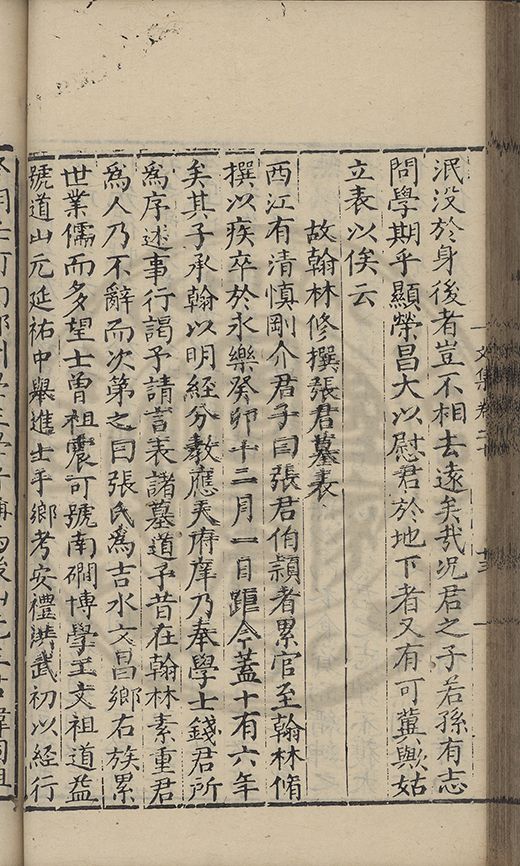 泯没於身後者豈不相去遠矣哉况君之子若孫有志
問學期乎顯榮昌大以慰君於地下者又有可冀歟姑
立表以俟云
故翰林修撰張君墓表
西江有清慎剛介君子曰張君伯穎者累官至翰林脩
撰以疾卒於永樂癸卯十二月一日距今蓋十有六年
矣其子承翰以明經分教應天府庠乃奉學士錢君所
爲序述事行謁予請言表諸墓道予昔在翰林素重君
爲人乃不辭而次第之曰張氏為吉水文昌鄉右族累
世業儒而多望士曾祖震可號南磵博學工文祖道益
號道山元延祐中舉進士于鄉考安禮洪武初以經行
文集卷二十